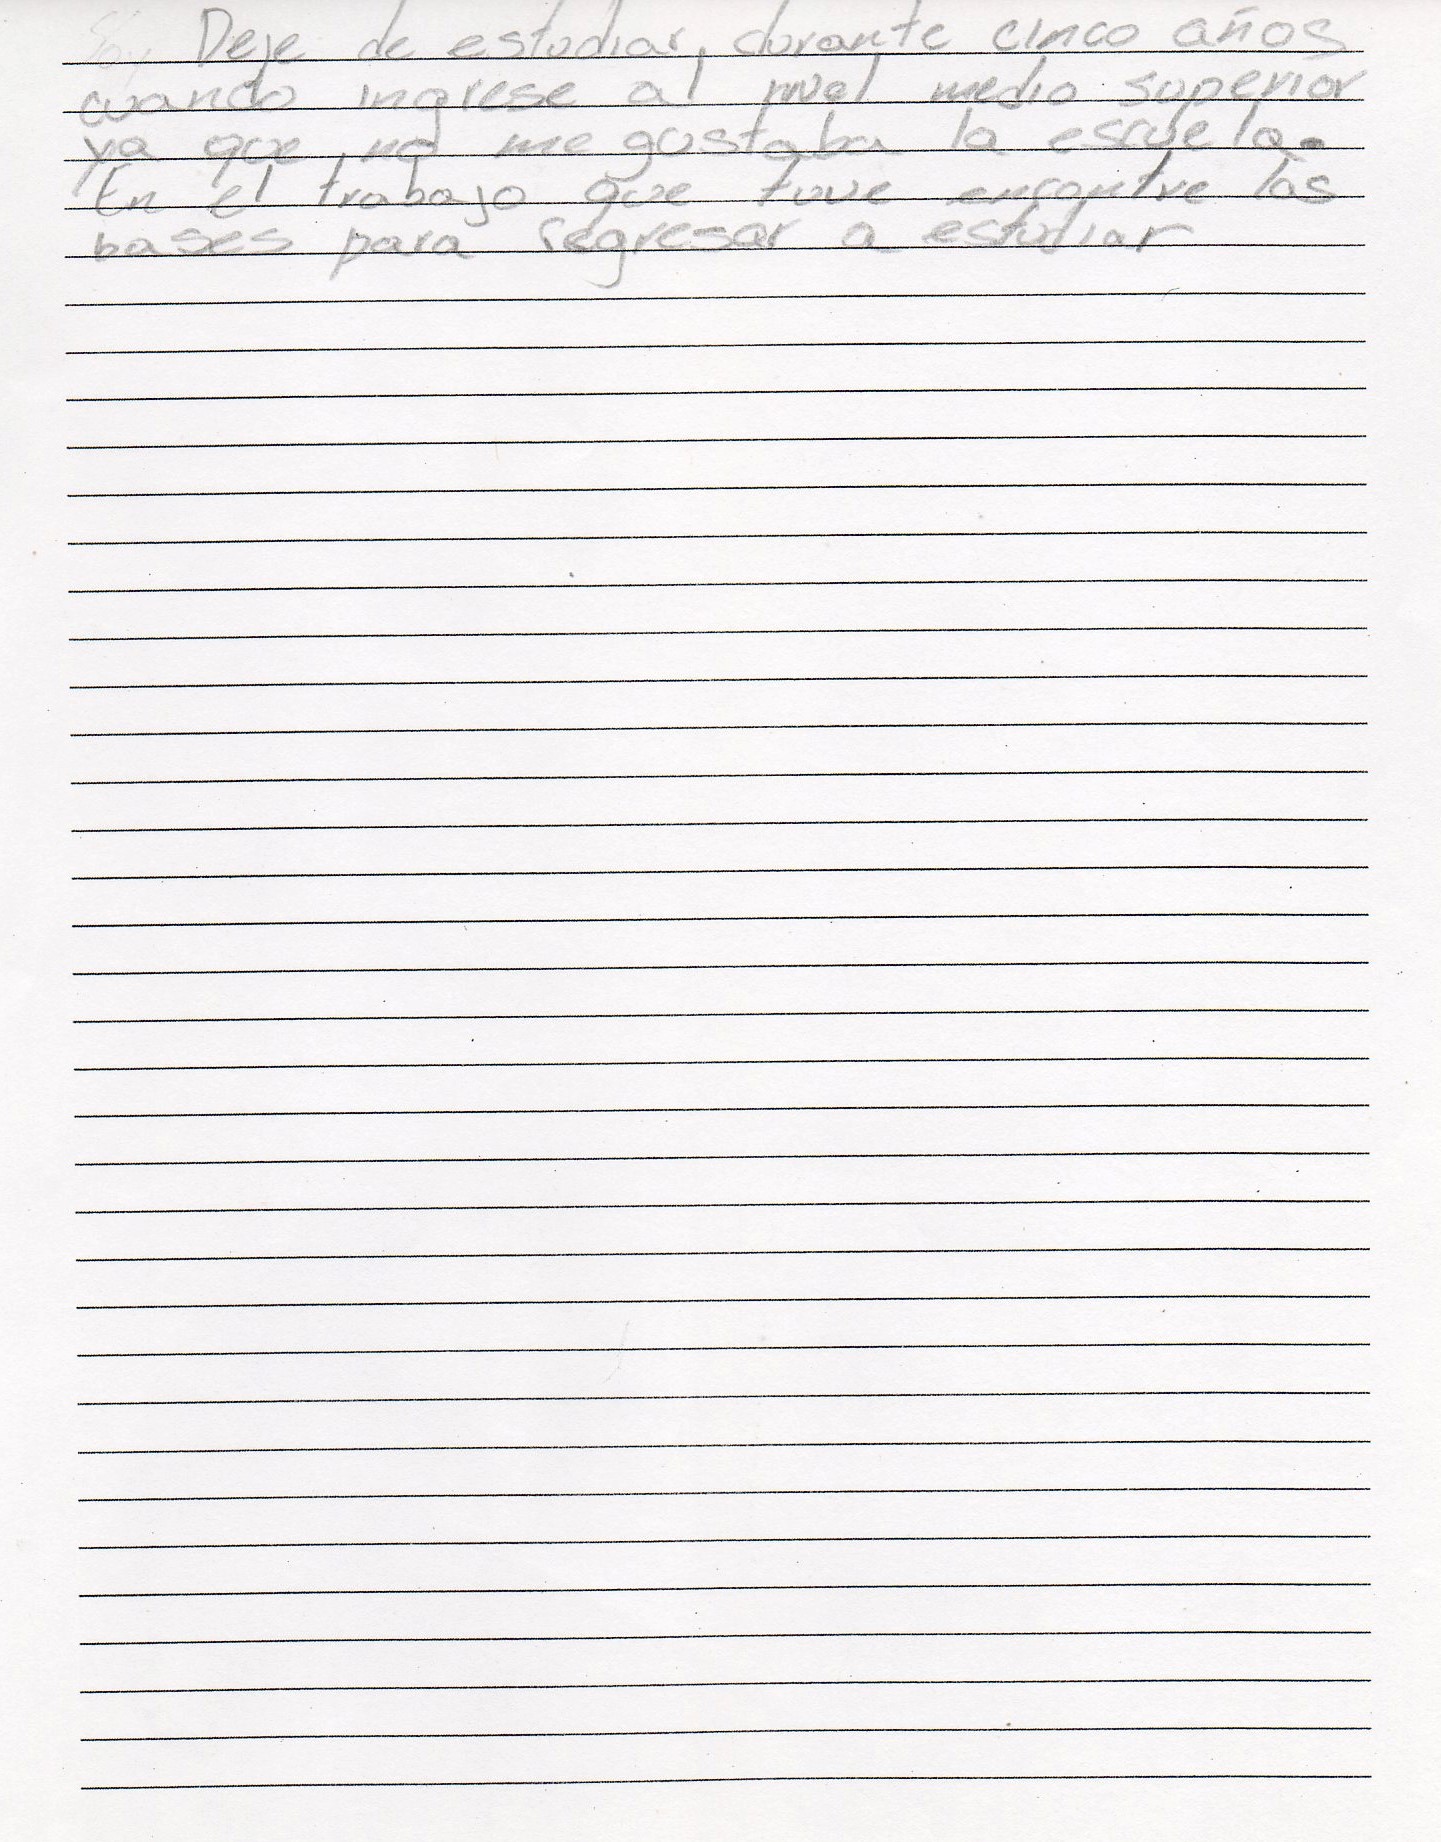 Deje de estudiar, durante cinco años
cuando ingrese al nivel medio superior
ya que no me gustaba la escuela.
En el trabajo que tuve encontre las
bases para regresar a estudiar